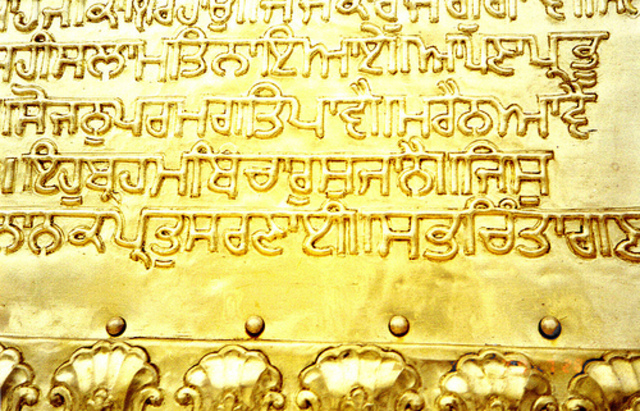 ਸਹੀ ਸਲਾਮਤਿ ਨਾਇ ਆਏ ॥ ਅਪਣਾ ਪ੍ਰਭੂ
ਸੋ ਜਨੁ ਪਰਮ ਗਤਿ ਪਾਵੈ ॥ ਮਰੈ ਨ ਆਵੈ
॥ ਇਹੁ ਬ੍ਰਹਮ ਬਿਚਾਰੁ ਸੁ ਜਾਨੈ ॥ ਜਿਸੁ
ਨਾਨਕ ਪ੍ਰਭ ਸਰਣਾਈ ॥ ਸਭ ਚਿੰਤਾ